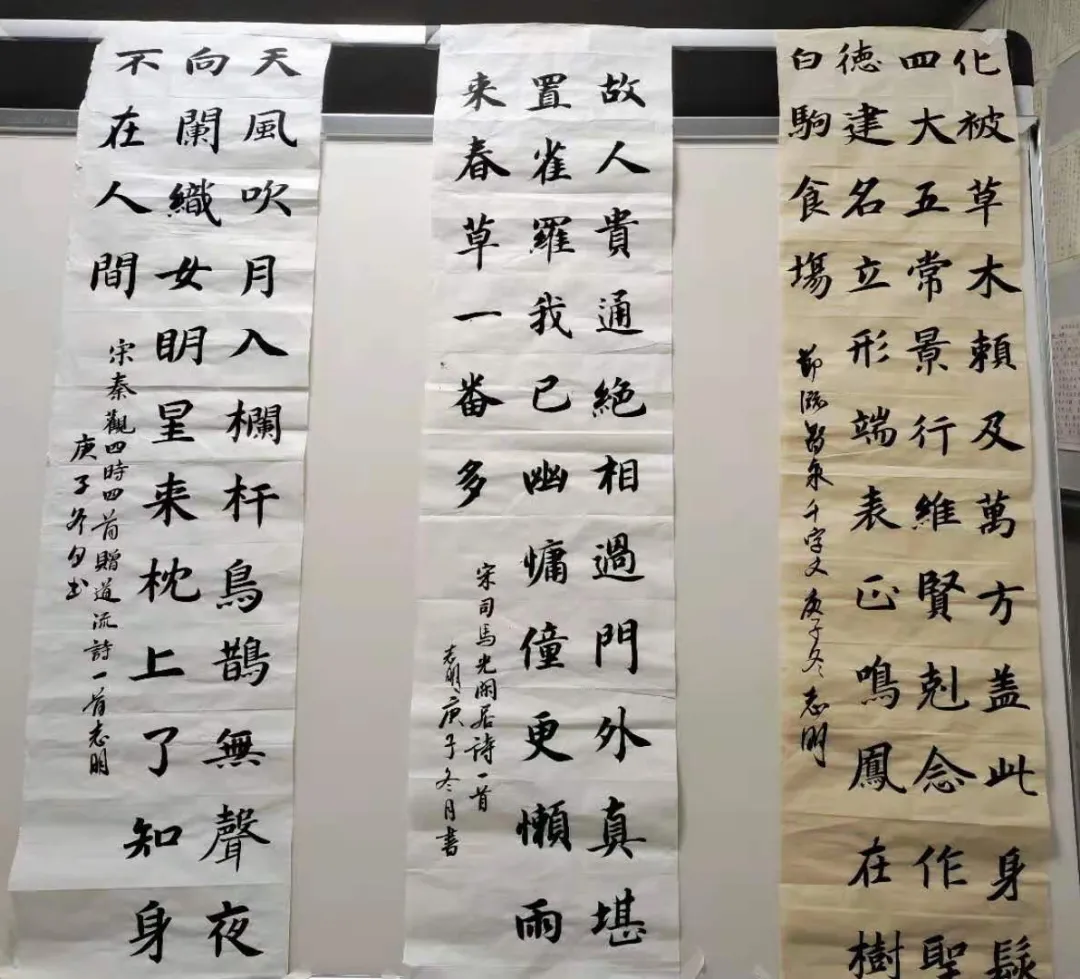 化被草木賴及萬方盖此身髮
四大五常景行維賢剋念作聖
德建名立形端表正鳴鳳在樹
白駒食塲
節臨智永千字文庚子冬志明
故人貴通絕相過門外真堪
置雀羅我已幽慵僮更懶雨
来春草一番多
宋司馬光閑居詩一首
志明庚子冬月書
天風吹月入欄杆鳥鵲無聲夜
向闌織女明星来枕上了知身
不在人間
宋秦觀四時四首贈道流詩一首志明
庚子冬月书